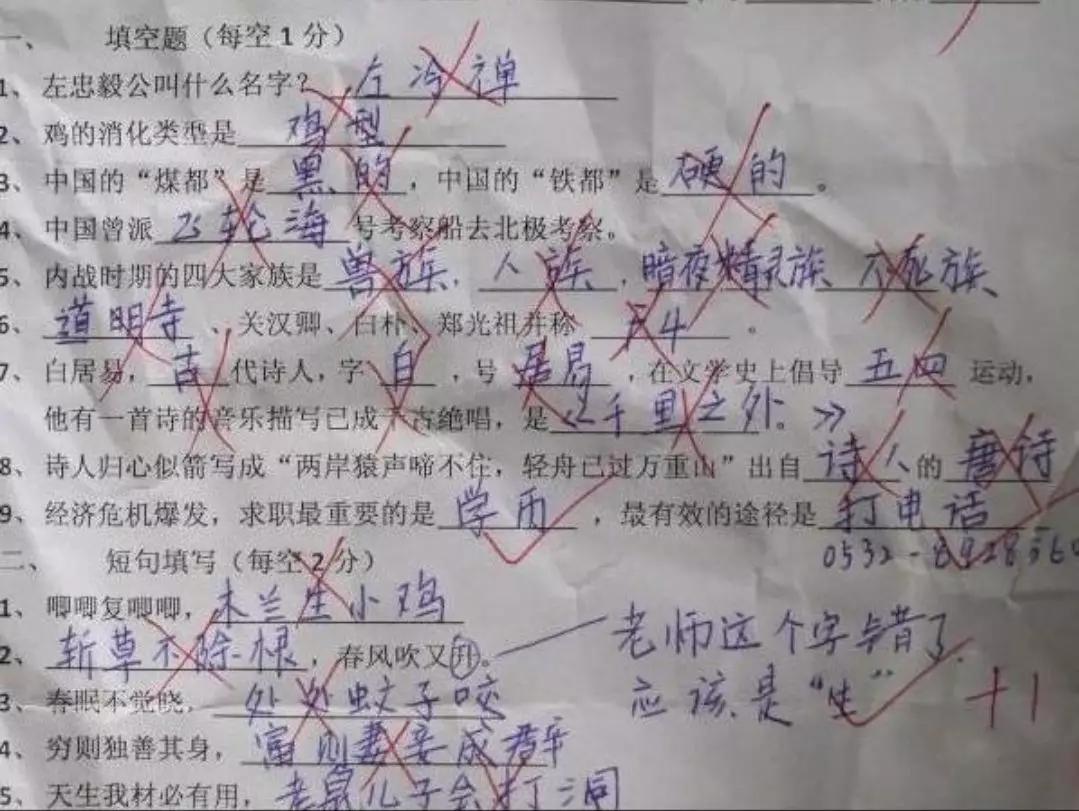 一、 填空题（每空1分）
1、左忠毅公叫什么名字？左冷禅
2、鸡的消化类型是鸡型
3、中国的“煤都”是黑的，中国的“铁都”是硬的。
4、中国曾派飞轮海号考察船去北极考察。
5、内战时期的四大家族是兽族、人族、暗夜精灵族 不死族、
6、道明寺、关汉卿、白朴、郑光祖并称F4。
7、白居易，古代诗人，字白，号居易，在文学史上倡导五四运动，
他有一首诗的音乐描写已成千古绝唱，是《千里之外。》
8、诗人归心似箭写成“两岸猿声啼不住，轻舟已过万重山”出自诗人的唐诗
9、经济危机爆发，求职最重要的是学历，最有效的途径是打电话
0532-8928
二、 短句填写（每空2分）
1、唧唧复唧唧，木兰生小鸡
2、斩草不除根，春风吹又升。
老师这个字错了.
应该是“生” +1
3、春眠不觉晓，处处蚊子咬
4、穷则独善其身，富则妻妾成群
5、天生我材必有用，老鼠儿子会打洞